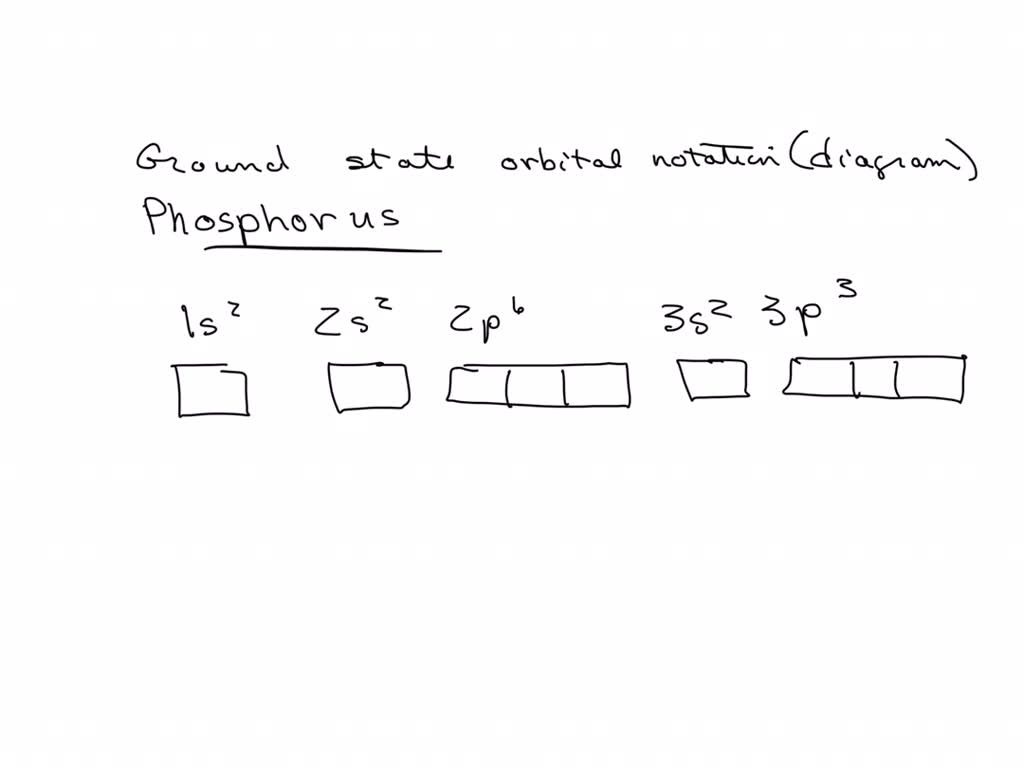 Ground state orbital notation (diagram)
Phosphorus
1s² 2s² 2p⁶ 3s² 3p³